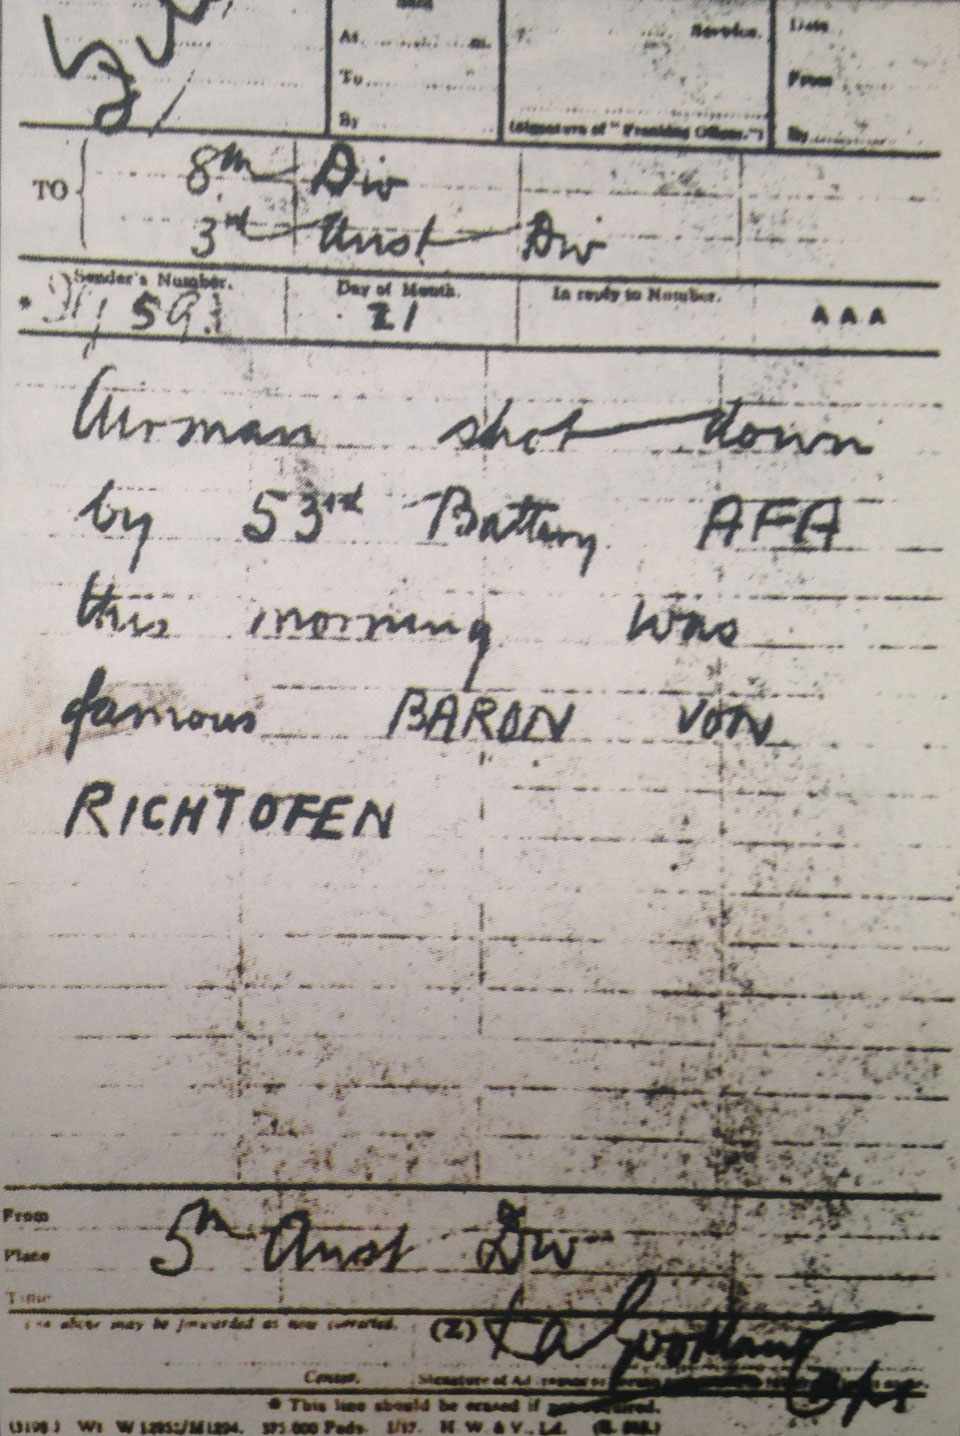 At m. Service. Date
To From
By (Signature of "Franking Officer.") By
TO 8th Div
3rd Aust Div
Sender's Number. Day of Month. In reply to Number.
* 59 21 AAA
Airman shot down
by 53rd Battery AFA
this morning was
famous BARON VON
RICHTOFEN
From
Place 5th Aust Div
Time
may be forwarded as now corrected. (Z)
Censor. Signature of
* This line should be erased if not required.
(3198.) Wt. W 12952/M1294. 375,000 Pads. 1/17. H. W. & V., Ld.